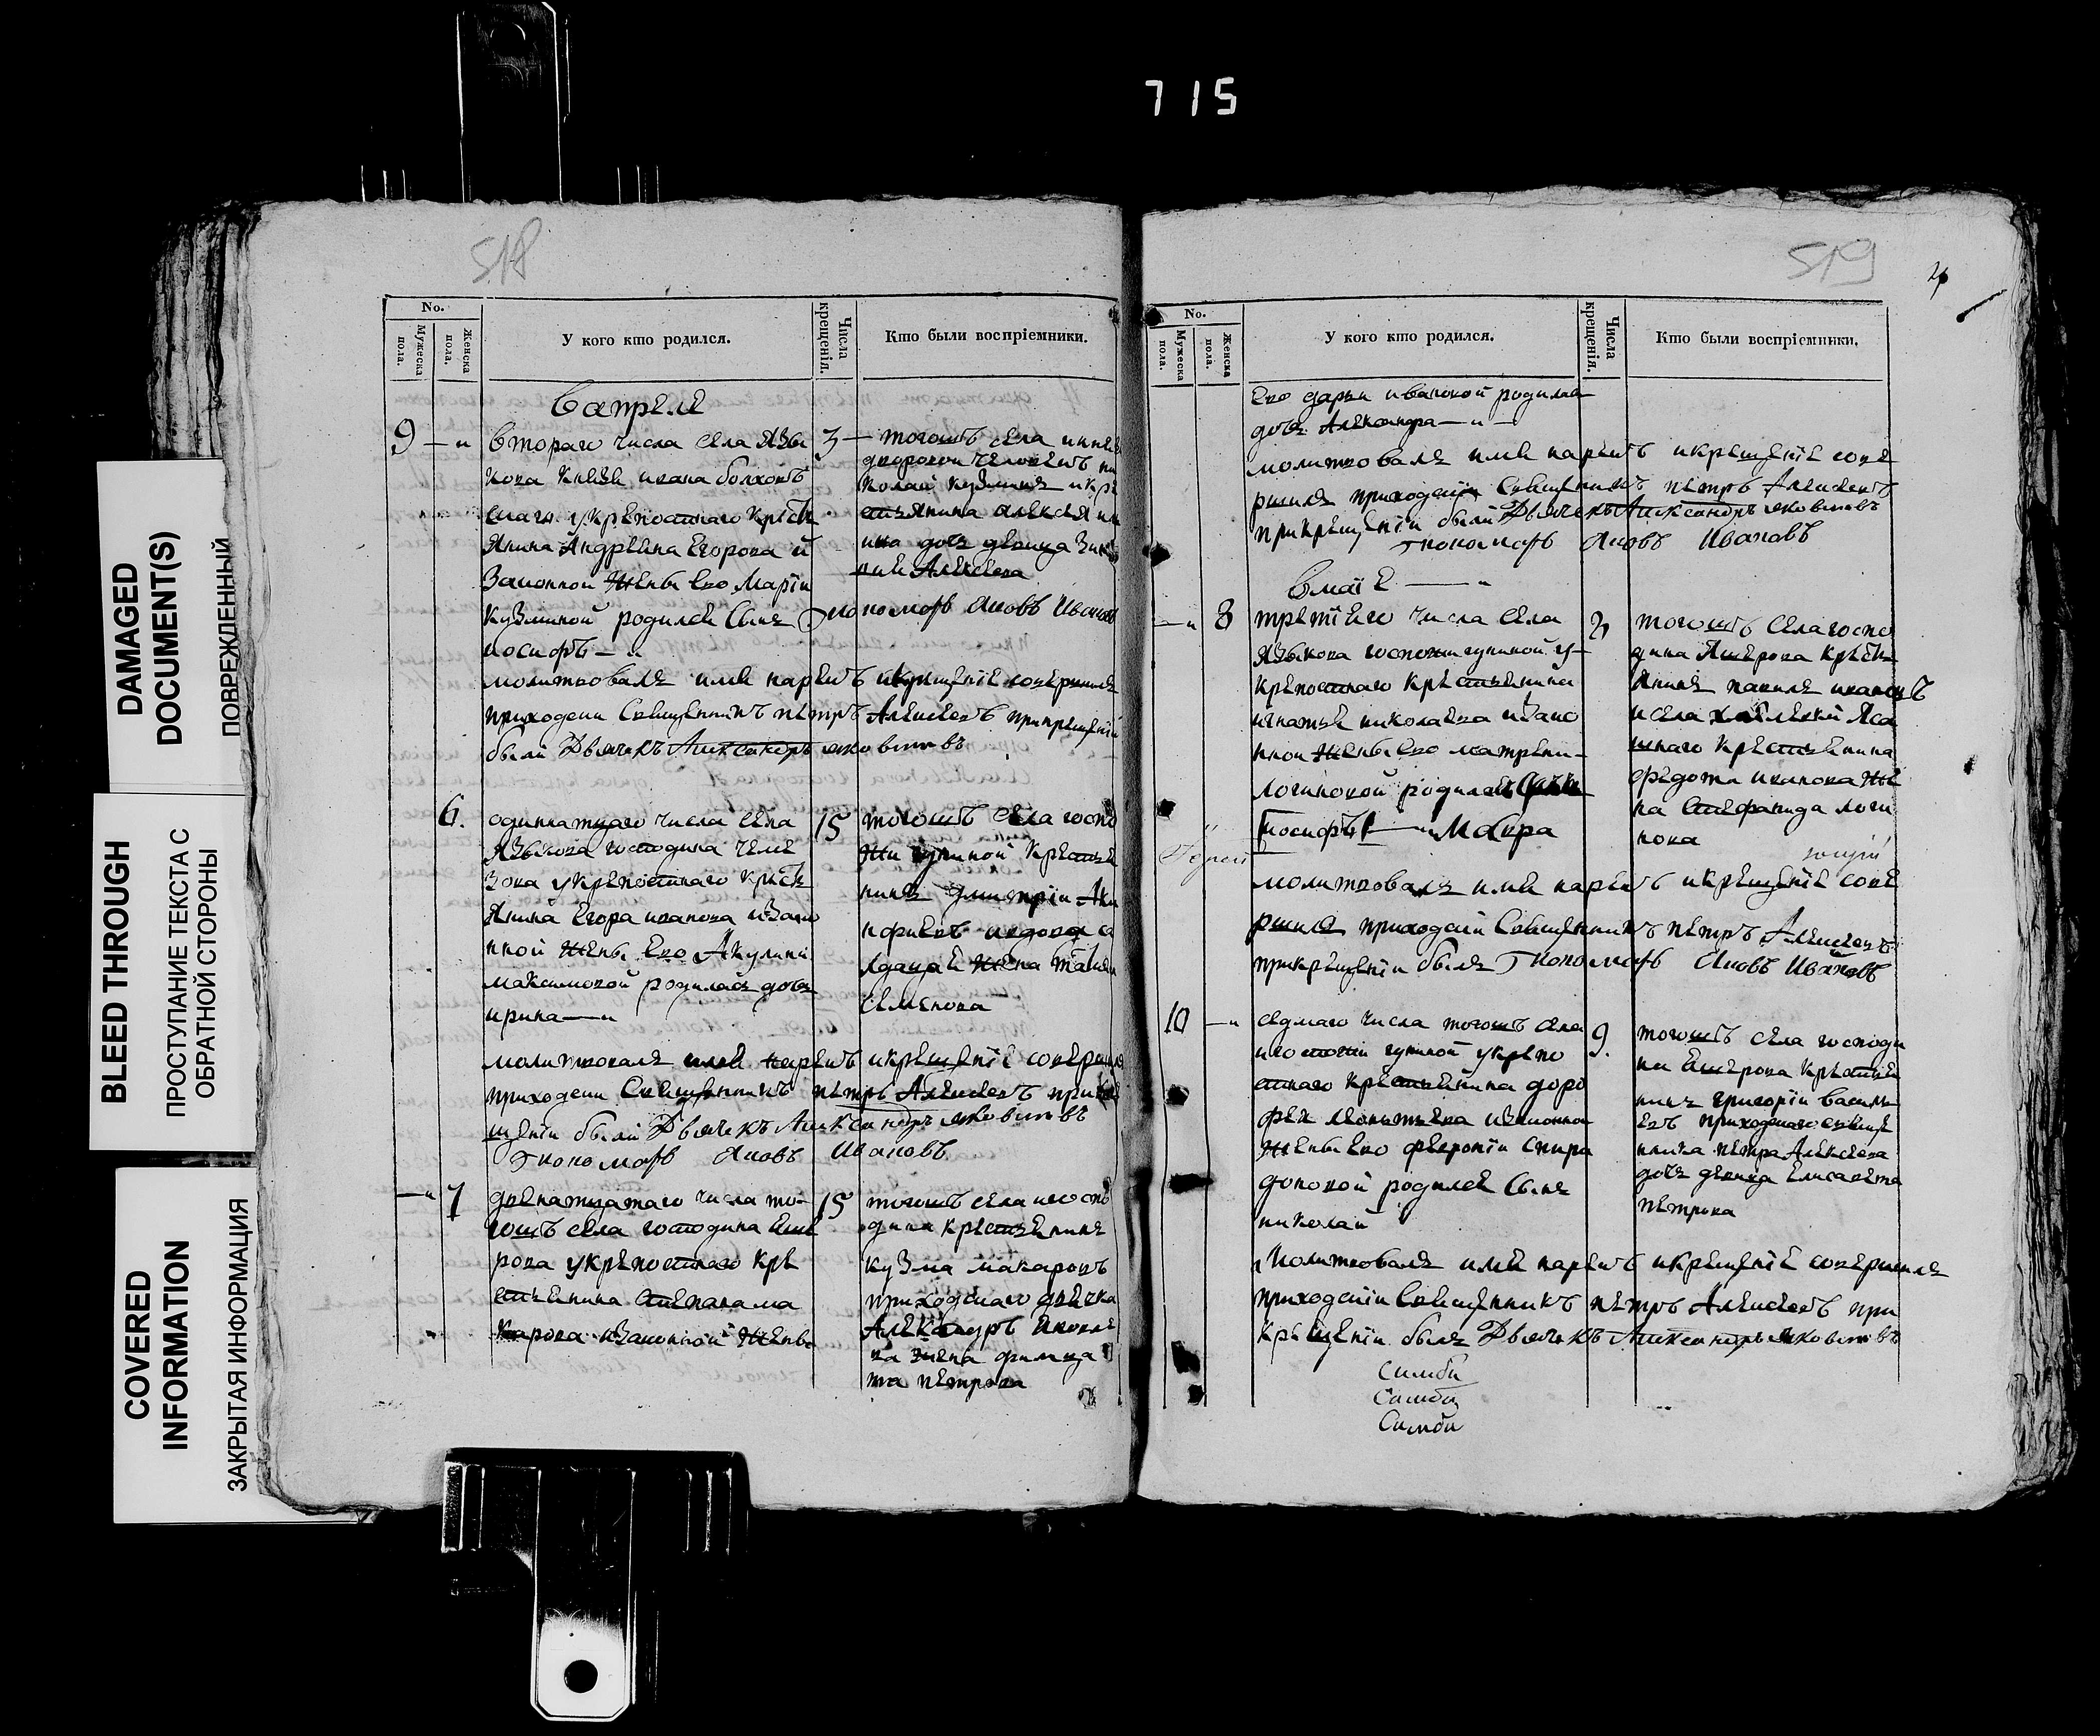 715
DAMAGED
DOCUMENT(S)
ПОВРЕЖДЕННЫЙ
BLEED THROUGH
ПРОСТУПАНИЕ ТЕКСТА С
ОБРАТНОЙ СТОРОНЫ
COVERED
INFORMATION
ЗАКРЫТАЯ ИНФОРМАЦИЯ
518
No.
Мужеска пола.
Женска пола.
У кого кто родился.
Числа крещенія.
Кто были воспріемники.
Вапреле
9 — „ втораго числа села Язы
кова князя ивана болховъ
скаго укрепостнаго крестъ
янина Андреяна Егорова и
Законной жены Его Маріи
кузминой родился сынъ
иосифъ — „
3 — тогошъ села
дворовой человекъ ни
колай кузминъ икре
стьянина алексея
дочь девица
Алексеева
Пономарь Яковъ Ивановъ
молитвовалъ имя наречъ икрещеніе совершилъ
приходски Священникъ петръ Алексеевъ прикрещеніи
были Дьячекъ Александръ яковлевъ
6. одинатцаго числа села
Языкова господина
зова укрепостнаго крестъ
янина Егора иванова изако
нной жены Его Акулины
максимовой родилась дочь
ирина — „
15 тогошъ села госпо
жи крестья
нинъ Дмитріи
лдацая жена татья
Семенова
молитвовалъ имя наречъ икрещеніе совершилъ
приходски Священникъ петръ Алексеевъ прикре
щеніи были Дьячекъ Александръ яковлевъ
Пономарь Яковъ Ивановъ
— „ 7 двенатцатаго числа то-
гошъ села господина Еше
рова укрепостнаго кре
стьянина Степана ма
карова изаконной жены
15 тогошъ села игоспо
дина крестьянинъ
кузма макаровъ
приходскаго дьячка
Александръ яковле
ва жена
та петрова
519
No.
Мужеска пола.
Женска пола.
У кого кто родился.
Числа крещенія.
Кто были воспріемники.
Его дарьи ивановой родилась
дочь Александра — „ —
молитвовалъ имя наречъ икрещеніе сове
ршилъ приходскіи Священникъ петръ Алексеевъ
прикрещеніи были Дьячекъ Александръ яковлевъ
Пономарь Яковъ Ивановъ
Вмаіе — „
— „ 8 третіяго числа села
Языкова госпожи у-
крепостнаго крестьянина
игнатья николаева изако
нной жены Его матрены-
логиновой родилась
иосифъ — „ Мавра
тогошъ села госпо
дина Яшерова крестъ
янинъ павилъ ивановъ
исела Яса
шнаго крестьянина
федота иванова же
на Стефанида логи
нова
молитвовалъ имя наречъ икрещеніе сове
ршилъ приходскіи Священникъ петръ Алексеевъ
прикрещеніи былъ Пономарь Яковъ Ивановъ
10 — „ седмаго числа тогошъ села
игоспожи укрепо
стнаго крестьянина доро
фея изаконной
жены Его февроніи спири
доновой родился сынъ
николай
9. тогошъ села господи
на Ешерова крестья
нинъ григоріи василь
евъ приходскаго священ
ника петра Алексеева
дочь девица Елисавета
петрова
Молитвовалъ имя наречъ икрещеніе совершилъ
приходскіи Священникъ петръ Алексеевъ при
крещеніи былъ Дьячекъ Александръ яковлевъ
Симби
Симби
Симби